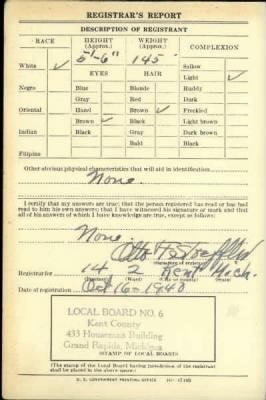 REGISTRAR'S REPORT
DESCRIPTION OF REGISTRANT
RACE HEIGHT (Approx.) WEIGHT (Approx.) COMPLEXION
White ✓ 5'-6" 145 Sallow
EYES HAIR Light ✓
Negro Blue Blonde Ruddy
Gray Red Dark
Oriental Hazel Brown ✓ Freckled
Brown ✓ Black Light brown
Indian Black Gray Dark brown
Bald Black
Filipino
Other obvious physical characteristics that will aid in identification
None.
I certify that my answers are true; that the person registered has read or has had
read to him his own answers; that I have witnessed his signature or mark and that
all of his answers of which I have knowledge are true, except as follows:
None.
Otto
(Signature of registrar)
Registrar for 14 2 Kent Mich.
Date of registration Oct 16-1940
LOCAL BOARD NO. 6
Kent County
433 Houseman Building
Grand Rapids, Michigan
STAMP OF LOCAL BOARD
(The stamp of the Local Board having jurisdiction of the registrant
shall be placed in the above space.)
U. S. GOVERNMENT PRINTING OFFICE